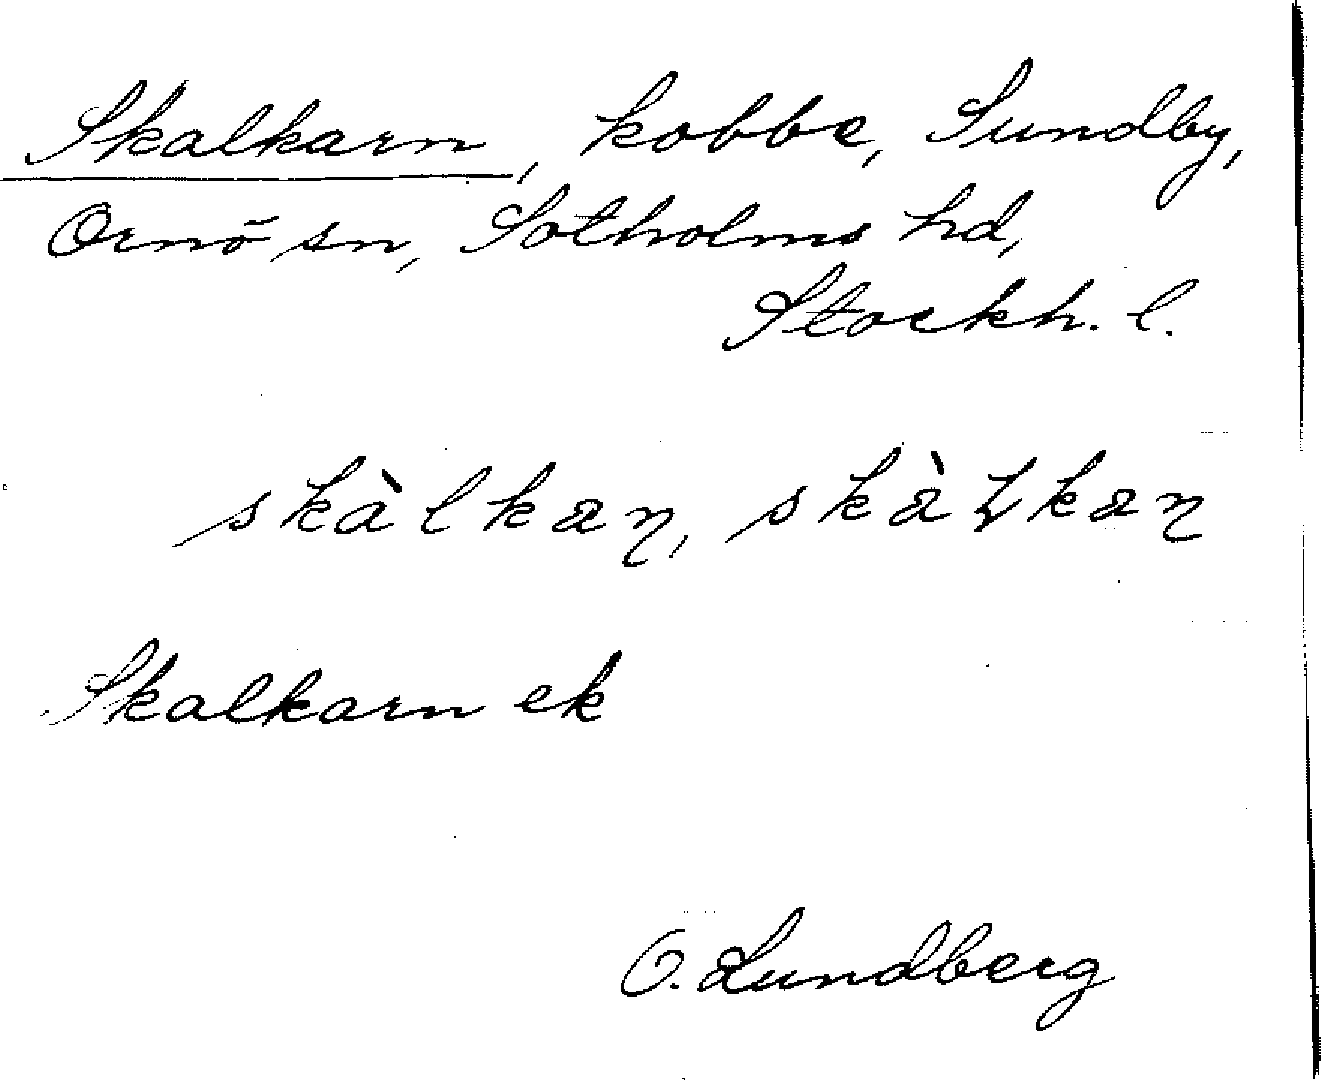 Skalkarn, kobbe, Sundby,
Ornö sn, Sotholms hd,
Stockh. l.
skàlkaɳ,
Skalkarn ek
O. Lundberg